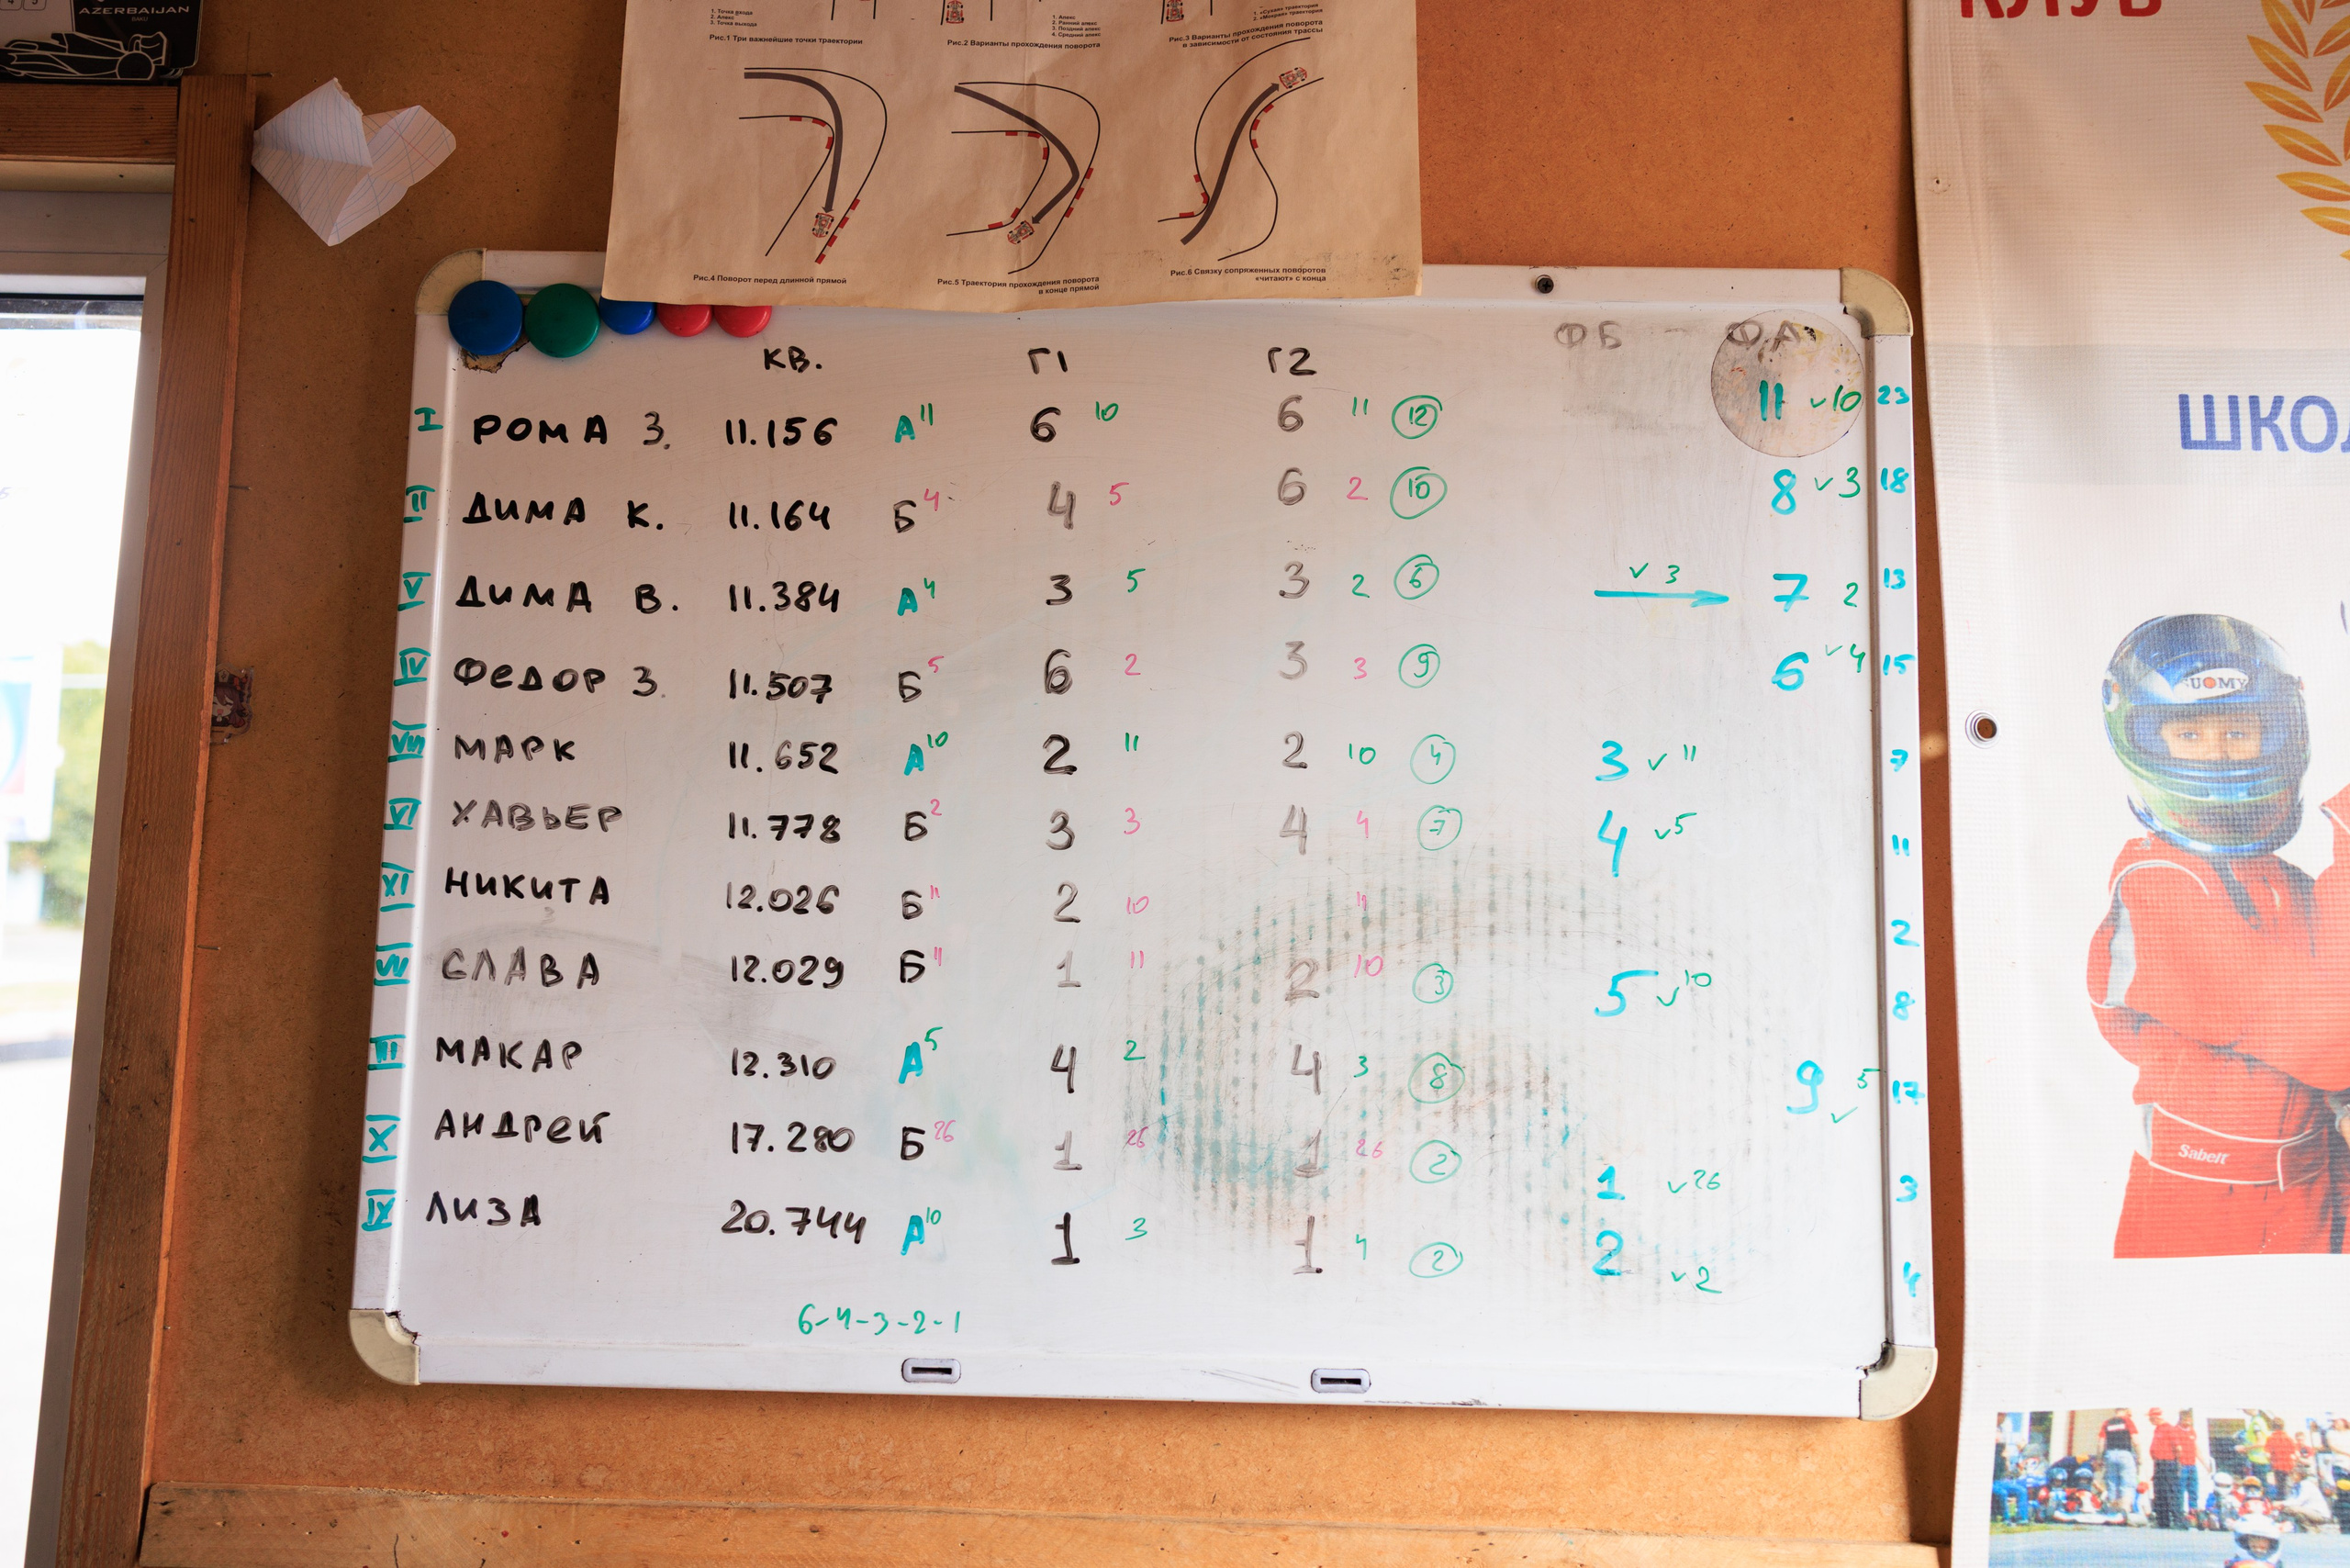 AZERBAIJAN
BAKU
1. Точка входа
2. Апекс
3. Точка выхода
Рис.1 Три важнейшие точки траектории
1. Апекс
2. Ранний апекс
3. Поздний апекс
4. Средний апекс
Рис.2 Варианты прохождения поворота
1. «Сухая» траектория
2. «Мокрая» траектория
Рис.3 Варианты прохождения поворота
в зависимости от состояния трассы
Рис.4 Поворот перед длинной прямой
Рис.5 Траектория прохождения поворота
в конце прямой
Рис.6 Связку сопряженных поворотов
«читают» с конца
КЛУБ
КВ. Г1 Г2 ФБ ФА
I РОМА З. 11.156 А 11 6 10 6 11 12 11 v10 23
II ДИМА К. 11.164 Б 4 4 5 6 2 10 8 v3 18
V ДИМА В. 11.384 А 4 3 5 3 2 6 v3 7 2 13
IV ФЕДОР З. 11.507 Б 5 6 2 3 3 9 6 v4 15
VIII МАРК 11.652 А 10 2 11 2 10 4 3 v 11 7
VI ХАВЬЕР 11.778 Б 2 3 3 4 4 7 4 v5 11
XI НИКИТА 12.026 Б 11 2 10 11 2
VII СЛАВА 12.029 Б 11 1 11 2 10 3 5 v10 8
III МАКАР 12.310 А 5 4 2 4 3 8 9 v 5 17
X АНДРЕЙ 17.280 Б 26 1 26 1 26 2 1 v26 3
IX ЛИЗА 20.744 А 10 1 3 1 4 2 2 v2 4
6-4-3-2-1
ШКОЛ
SUOMY
Sabelt